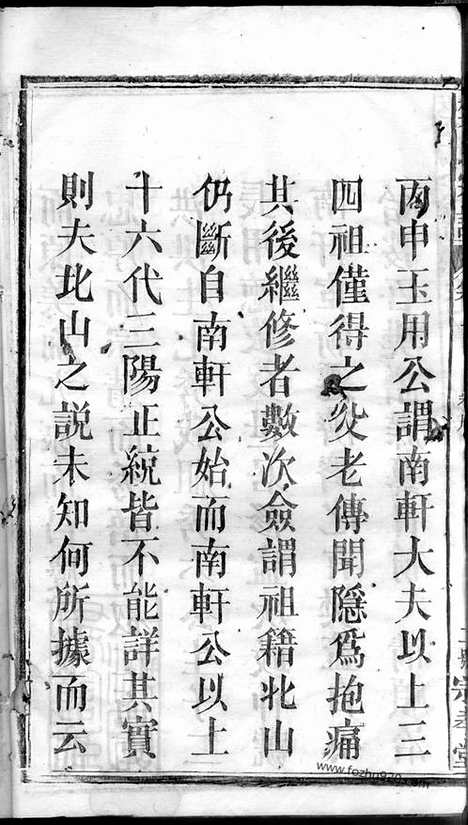 丙申玉用公謂南軒大夫以上三
四祖僅得之父老傳聞隱爲抱痛
其後繼修者數次僉謂祖籍北山
仍斷自南軒公始而南軒公以上
十六代三陽正統皆不能詳其實
則夫北山之説未知何所據而云
www.fozhu920.com